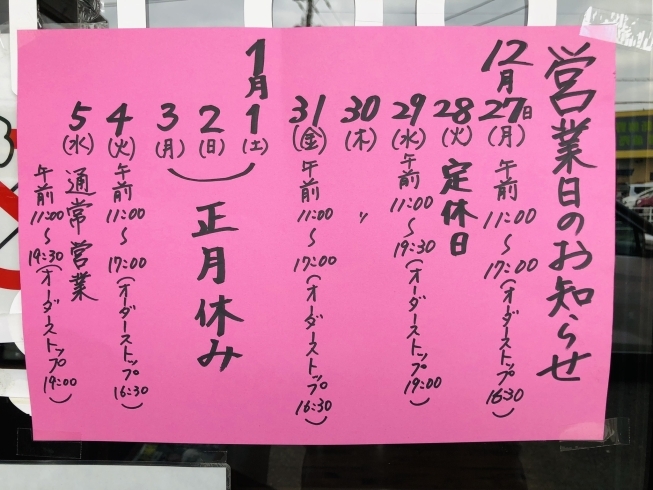 営業日のお知らせ
12月
27日(月)午前11:00~17:00(オーダーストップ16:30)
28(火)定休日
29(水)午前11:00~19:30(オーダーストップ19:00)
30(木)〃
31(金)午前11:00~17:00(オーダーストップ16:30)
1月
1(土)
2(日)正月休み
3(月)
4(火)午前11:00~17:00(オーダーストップ16:30)
5(水)通常営業
午前11:00~19:30(オーダーストップ19:00)